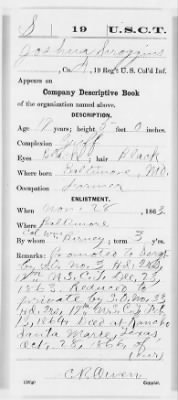 S | 19 | U.S.C.T.
Joshua Scroggins
, Co. , 19 Reg't U. S. Col'd Inf.
Appears on
Company Descriptive Book
of the organization named above.
DESCRIPTION.
Age years; height 5 feet 0 inches.
Complexion
Eyes Black; hair Black
Where born Baltimore, Md.
Occupation Farmer
ENLISTMENT.
When Nov. 28, 1863
Where Baltimore
By whom Col. Wm. Birney; term 3 y'rs.
Remarks: Promoted to Sergt
by No. 3 Hd. Qrs.
U.S.C.T. Dec. 23,
1863. Reduced to
private by S.O. No. 33,
Hd. Qrs. 19th U.S.C.T. Feb.
13, 1864. Died at Rancho
Santa Maria Texas,
Oct. 28, 1866, of
C R Owen
Copyist.